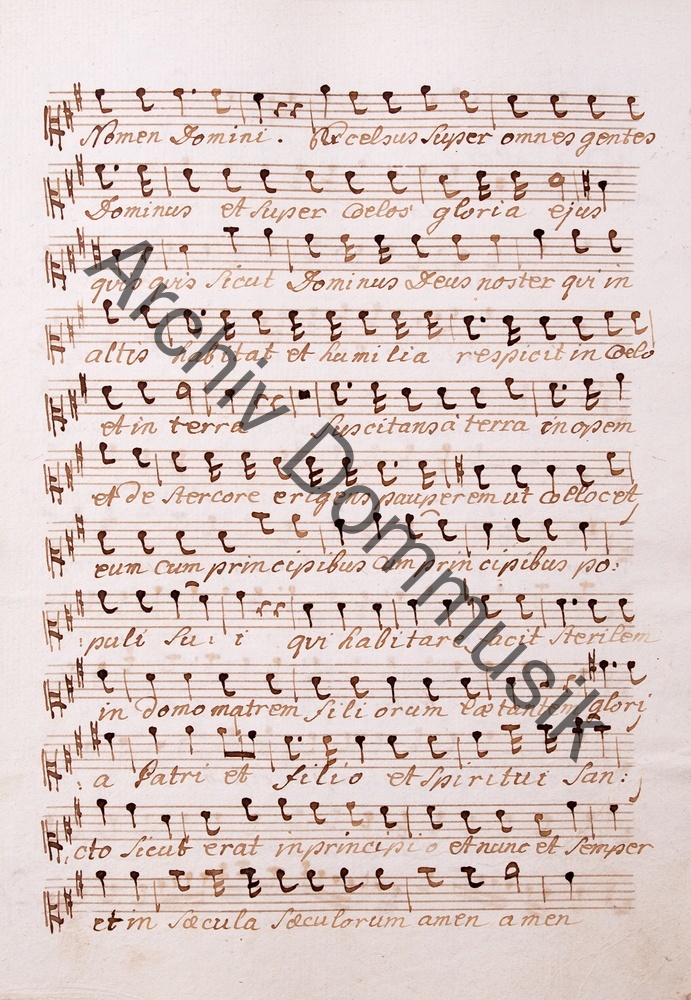 Nomen Domini. Excelsus super omnes gentes
Dominus et super Coelos gloria ejus
quis quis sicut Dominus Deus noster qui in
altis habitat et humilia respicit in Coelo
et in terra Suscitans a terra inopem
et de stercore erigens pauperem ut Collocet
eum cum principibus cum principibus po:
:puli su: i qui habitare facit sterilem
in domo matrem filiorum laetantem glori
:a Patri et filio et spiritui San:
:cto sicut erat in principio et nunc et semper
et in saecula saeculorum amen amen
Archiv Dommusik